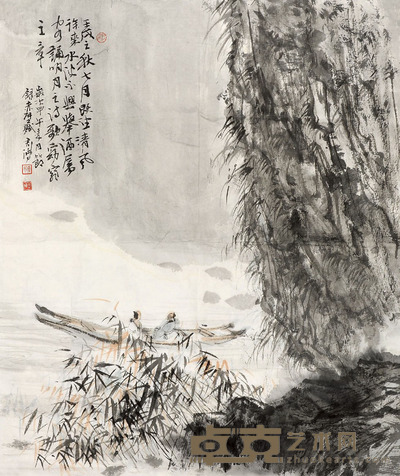 壬戌之秋七月既望清风
徐来水波不兴举酒属
客诵明月之诗歌窈窕
之章
岁次甲午
点克艺术网